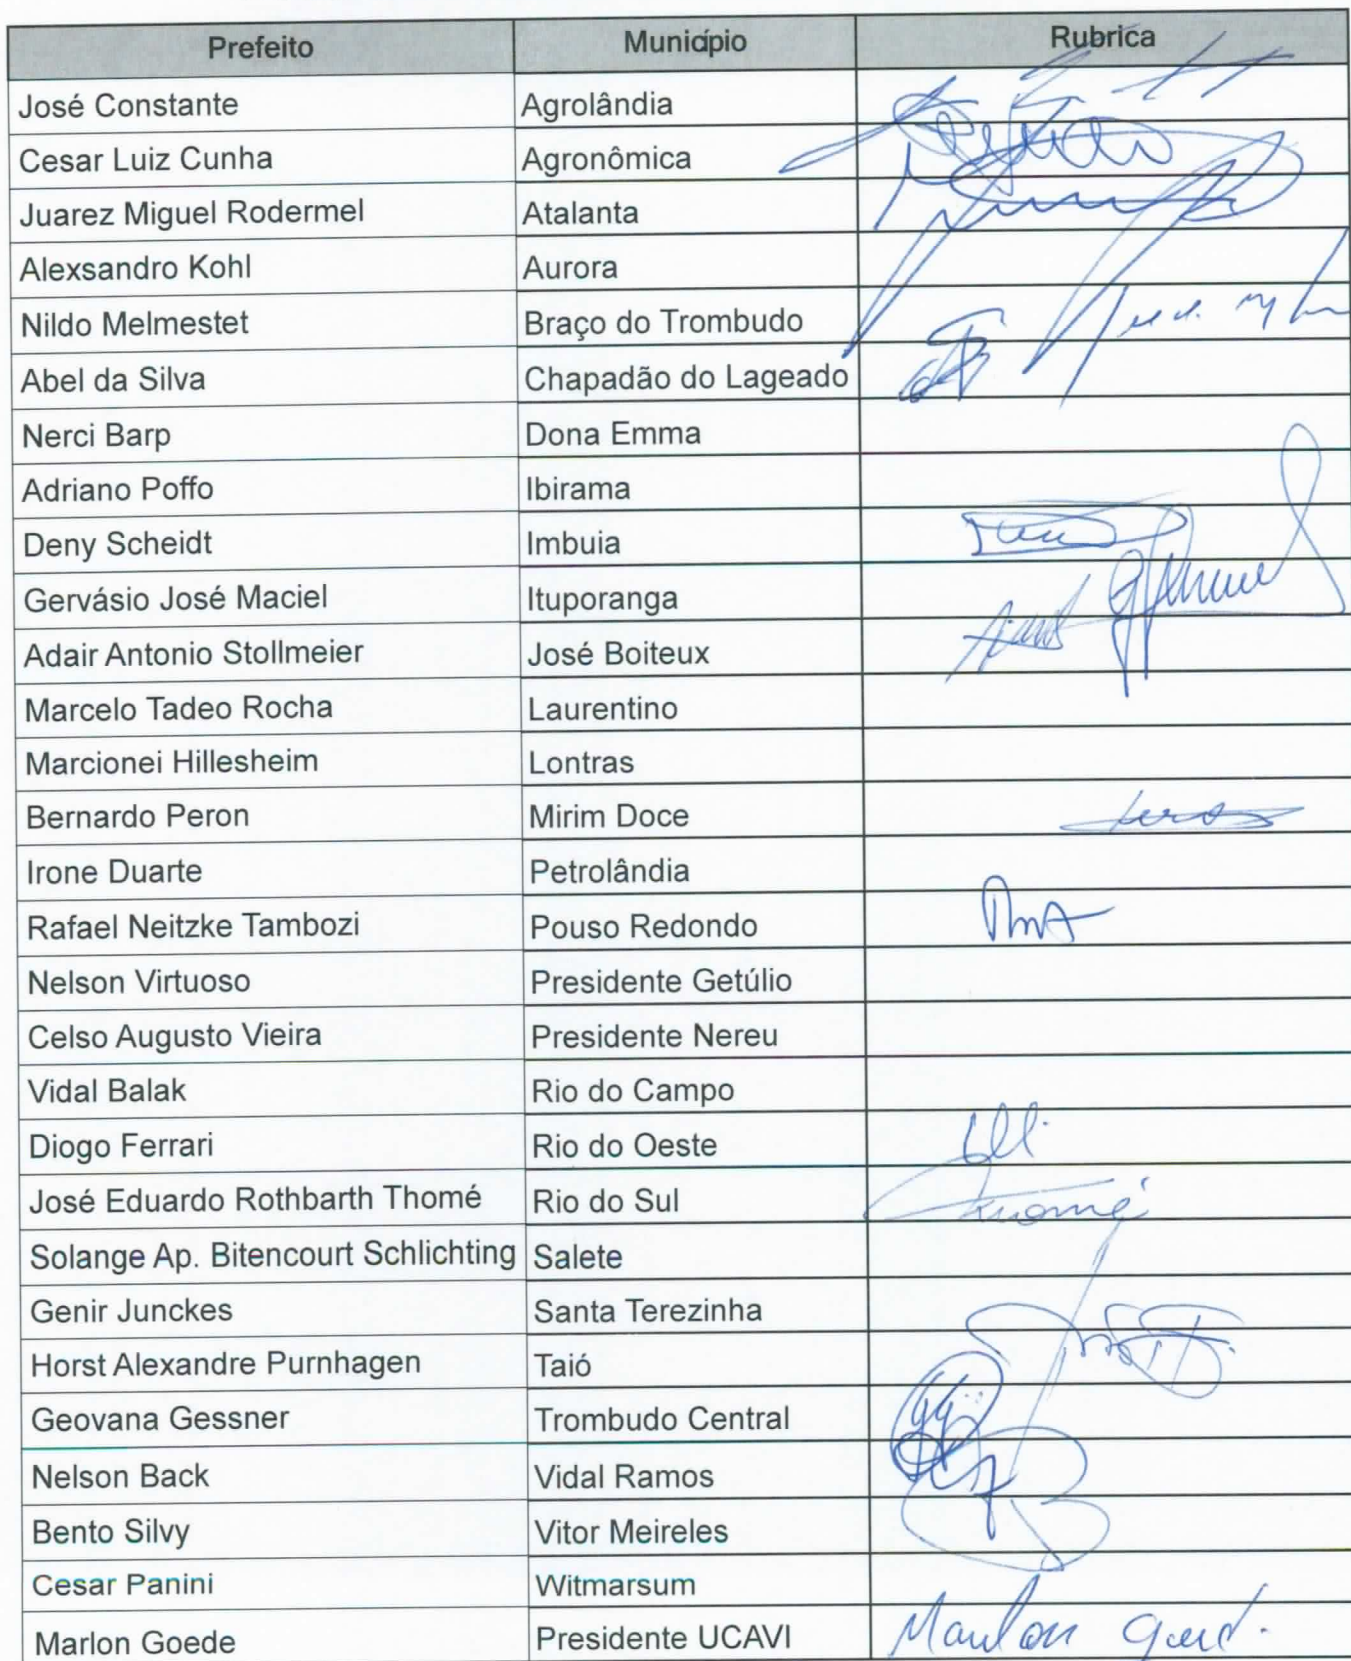 Prefeito Município Rubrica
José Constante Agrolândia
Cesar Luiz Cunha Agronômica
Juarez Miguel Rodermel Atalanta
Alexsandro Kohl Aurora
Nildo Melmestet Braço do Trombudo
Abel da Silva Chapadão do Lageado
Nerci Barp Dona Emma
Adriano Poffo Ibirama
Deny Scheidt Imbuia
Gervásio José Maciel Ituporanga
Adair Antonio Stollmeier José Boiteux
Marcelo Tadeo Rocha Laurentino
Marcionei Hillesheim Lontras
Bernardo Peron Mirim Doce
Irone Duarte Petrolândia
Rafael Neitzke Tambozi Pouso Redondo
Nelson Virtuoso Presidente Getúlio
Celso Augusto Vieira Presidente Nereu
Vidal Balak Rio do Campo
Diogo Ferrari Rio do Oeste
José Eduardo Rothbarth Thomé Rio do Sul
Solange Ap. Bitencourt Schlichting Salete
Genir Junckes Santa Terezinha
Horst Alexandre Purnhagen Taió
Geovana Gessner Trombudo Central
Nelson Back Vidal Ramos
Bento Silvy Vitor Meireles
Cesar Panini Witmarsum
Marlon Goede Presidente UCAVI Marlon